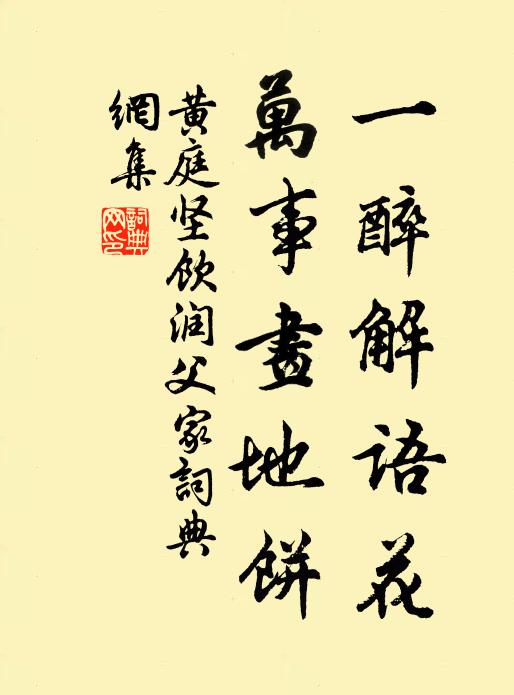 一醉解语花
萬事畫地餅
黄庭坚饮润父家詞典
網集
詞典
网印